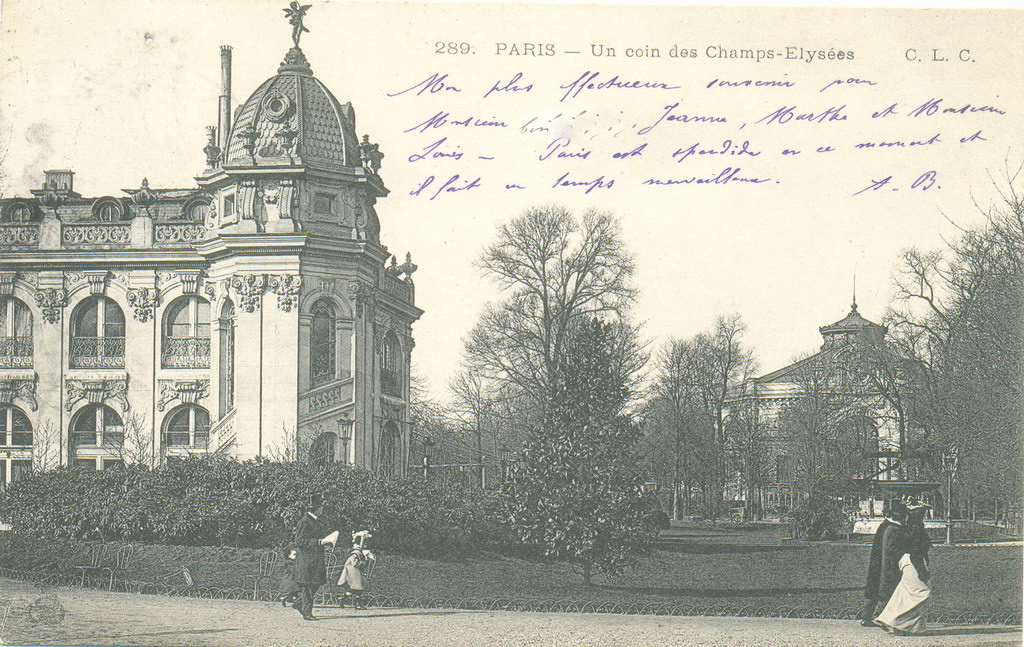 289. PARIS — Un coin des Champs-Elysées C. L. C.
Mon plus affectueux souvenir pour
Monsieur Jeanne, Marthe et Monsieur
Louis — Paris est splendide en ce moment et
il fait un temps merveilleux. A. B.